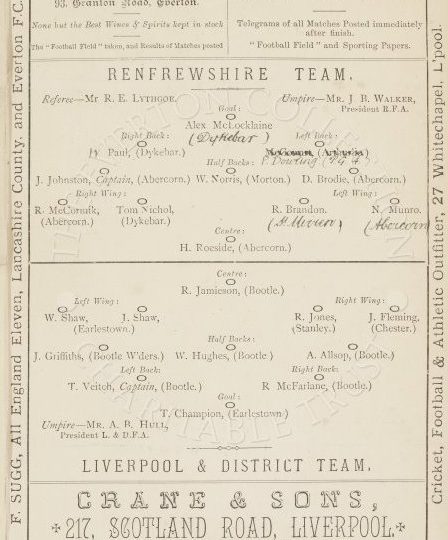 93, Granton Road, Everton.
None but the Best Wines & Spirits kept in stock
The "Football Field" taken, and Results of Matches posted
Telegrams of all Matches Posted immediately
after finish.
"Football Field" and Sporting Papers.
RENFREWSHIRE TEAM.
Referee—Mr R. E. LYTHGOE.
Umpire—MR. J. B. WALKER,
President R.F.A.
Goal:
Alex McLocklaine
(Dykebar)
Right Back:
Left Back:
Paul, (Dykebar.)
Half Backs:
P. Dowling
J. Johnston, Captain, (Abercorn.)
W. Norris, (Morton.)
D. Brodie, (Abercorn.)
Right Wing:
Left Wing:
R. McCornuik,
(Abercorn.)
Tom Nichol,
(Dykebar.)
R. Brandon.
(St. Mirren)
N. Munro.
(Abercorn)
Centre:
H. Roeside, (Abercorn.)
Centre:
R. Jamieson, (Bootle.)
Left Wing:
Right Wing:
W. Shaw,
J. Shaw,
(Earlestown.)
R. Jones,
(Stanley.)
J. Fleming,
(Chester.)
Half Backs:
J. Griffiths, (Bootle W'ders.)
W. Hughes, (Bootle )
A. Allsop, (Bootle.)
Left Back:
Right Back:
T. Veitch, Captain, (Bootle.)
R McFarlane, (Bootle.)
Goal:
T. Champion, (Earlestown)
Umpire—MR. A. B. HULL,
President L. & D.F.A.
LIVERPOOL & DISTRICT TEAM.
CRANE & SONS,
217, SCOTLAND ROAD, LIVERPOOL.
F. SUGG, All England Eleven, Lancashire County, and Everton F.C.
Cricket, Football & Athletic Outfitter, 27 Whitechapel, L'pool.